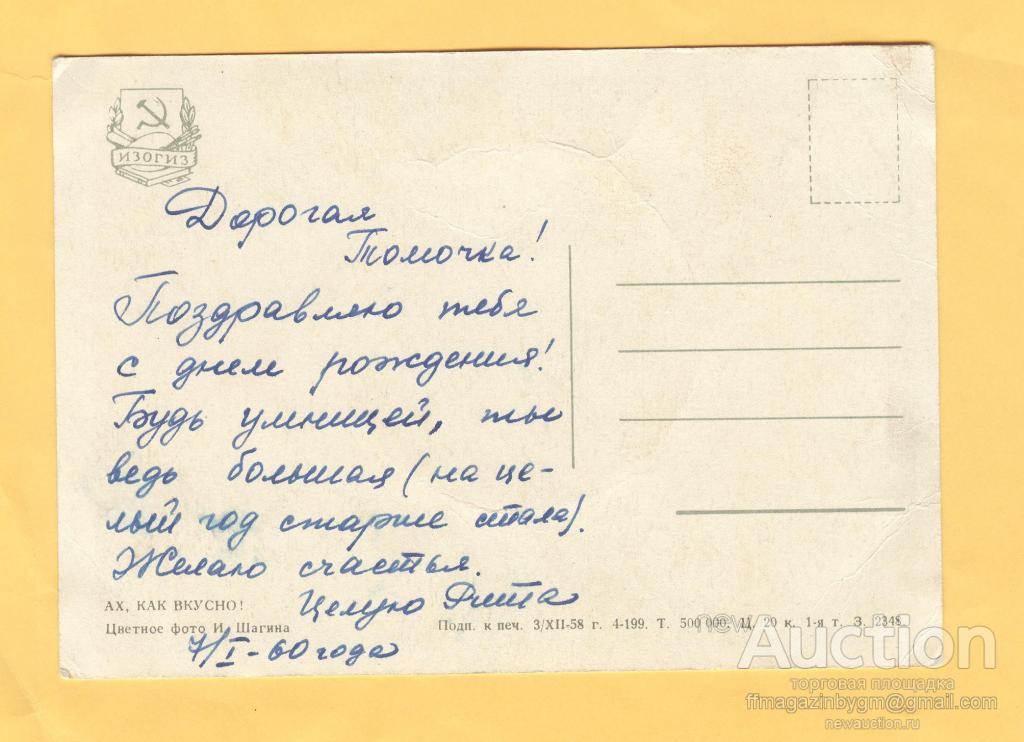 ИЗОГИЗ
Дорогая
Томочка!
Поздравляю тебя
с днем рождения!
Будь умницей, ты
ведь большая (на це-
лый год старше стала).
Желаю счастья.
Целую Рита
7/I-60 года
АХ, КАК ВКУСНО!
Цветное фото И. Шагина
Подп. к печ. 3/XII-58 г. 4-199. Т. 500 000. Ц. 20 к. 1-я т. З. 2348
newAuction
торговая площадка
ffmagazinbygm@gmail.com
newauction.ru